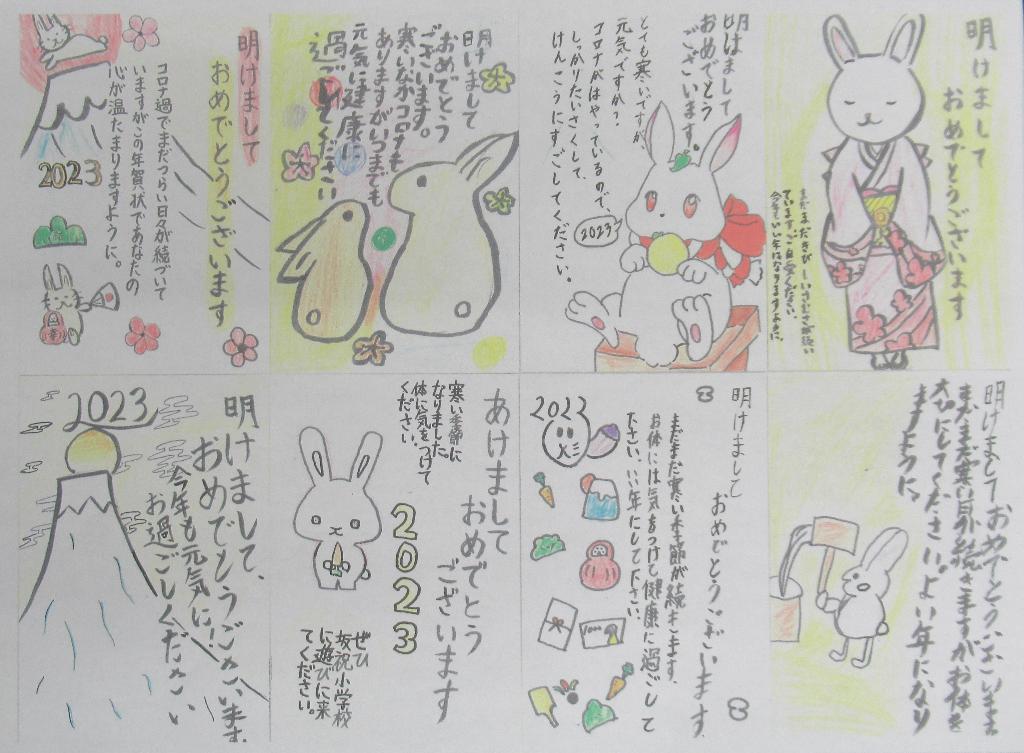 明けまして
おめでとうございます
コロナ過でまだつらい日々が続づいて
いますがこの年賀状であなたの
心が温たまりますように。
2023
明けまして
おめでとう
ございます。
寒いなかコロナも
ありますがいつまでも
元気に健康に
過ごしてください
明けまして
おめでとう
ございます。
とても寒いですが
元気ですか？
コロナがはやっているので、
しっかりたいさくして、
けんこうにすごしてください。
2023
明けまして
おめでとうございます
まだまだきびしいさむさが続い
ていますがご自愛ください。
今年もいい年になりますように。
2023
明けまして、
おめでとうございます。
今年も元気に!!
お過ごしください
あけまして
おめでとう
ございます
2023
寒い季節に
なりました。
体に気をつけて
ください。
ぜひ
坂祝小学校
に遊びに来
てください。
明けまして
おめでとうございます
まだまだ寒い季節が続きます。
お体には気をつけて健康に過ごして
下さい。いい年にして下さい。
2023
明けましておめでとうございます
まだまだ寒い日が続きますが、お体を
大切にしてください。よい年になり
ますように。